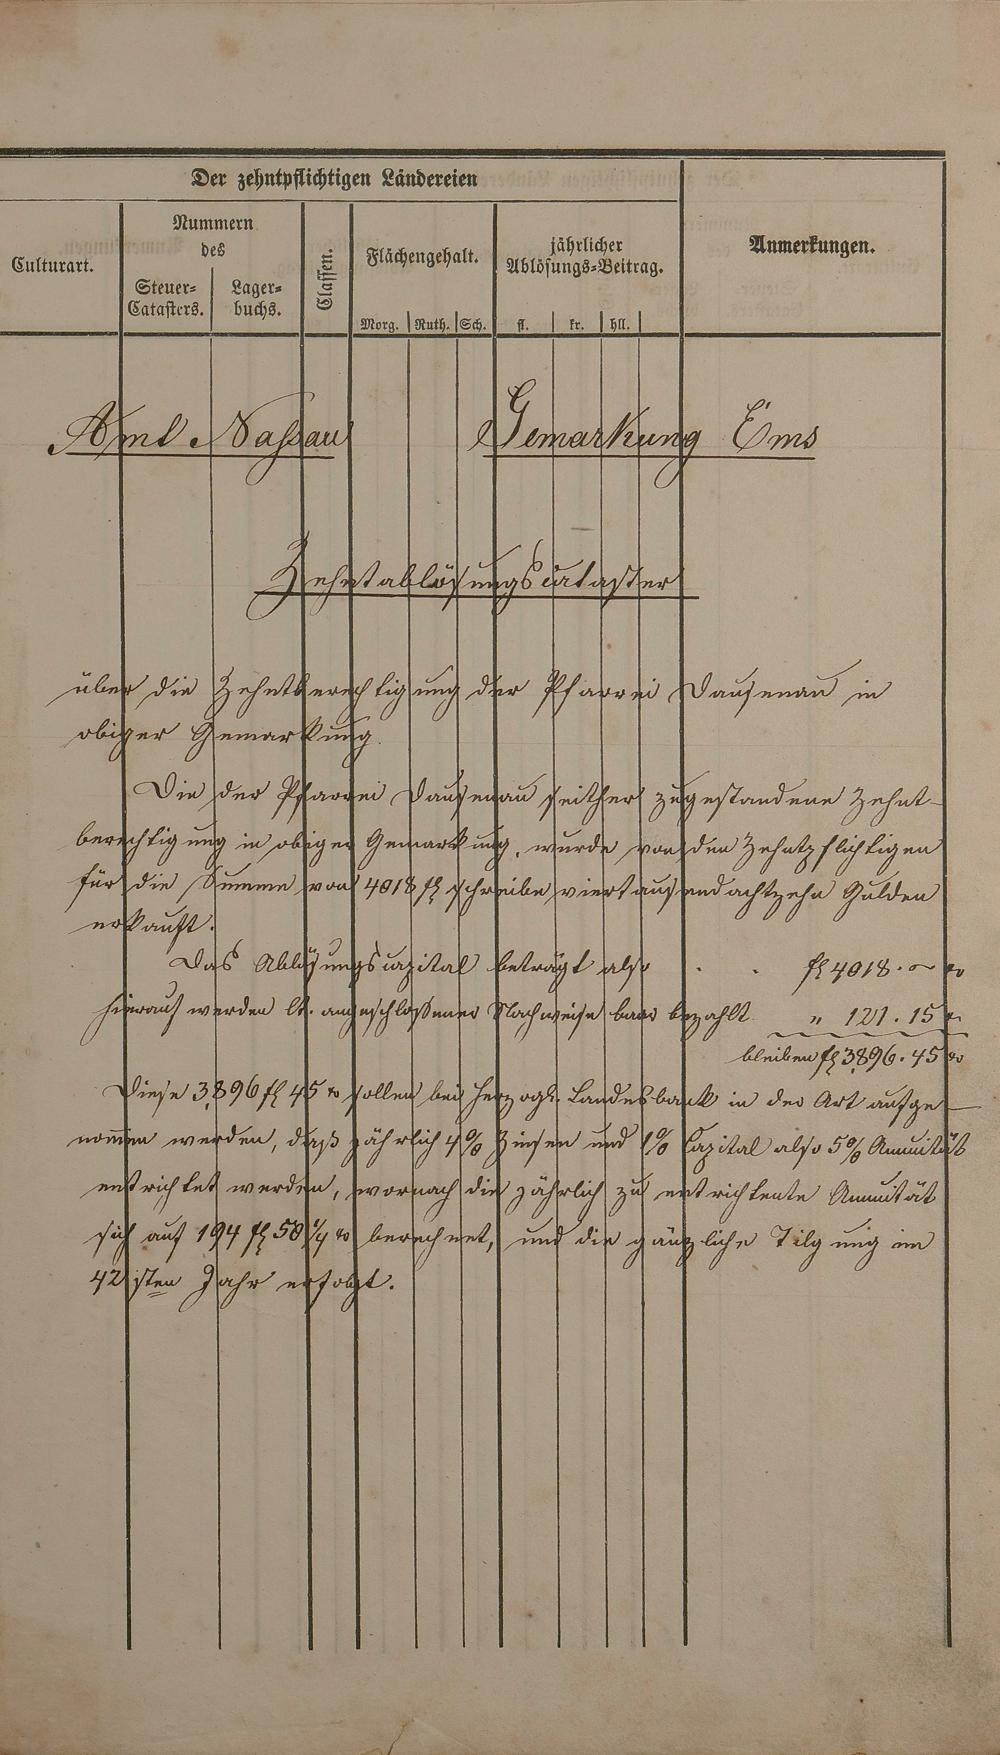 Der zehntpflichtigen Ländereien
Culturart.
Nummern
des
Steuer-
Catasters.
Lager-
buchs.
Classen.
Flächengehalt.
Morg. Ruth. Sch.
jährlicher
Ablösungs-Beitrag.
fl. kr. hll.
Anmerkungen.
Amt Nassau Gemarkung Ems
Zehntablösungscataster
über die Zehntberechtigung der Pfarrei Dausenau in
obiger Gemarkung.
Die der Pfarrei Dausenau seither zugestandene Zehnt-
berechtigung in obiger Gemarkung, wurde von den Zehntpflichtigen
für die Summe von 4018 fl schreibe viertausendachtzehn Gulden
erkauft.
Das Ablösungscapital beträgt also . . fl 4018 . — xr
hierauf werden lt. angeschlossener Nachweise baar bezahlt " 121 . 15 xr
bleiben fl 3,896 . 45 xr
Diese 3,896 fl 45 xr sollen bei Herzogl. Landesbank in der Art aufge-
nommen werden, daß jährlich 4% Zinsen und 1% Capital also 5% Annuität
entrichtet werden, wornach die jährlich zu entrichtente Annuität
sich auf 194 fl 50 1/4 xr berechnet, und die gänzliche Tilgung im
42isten Jahr erfolgt.